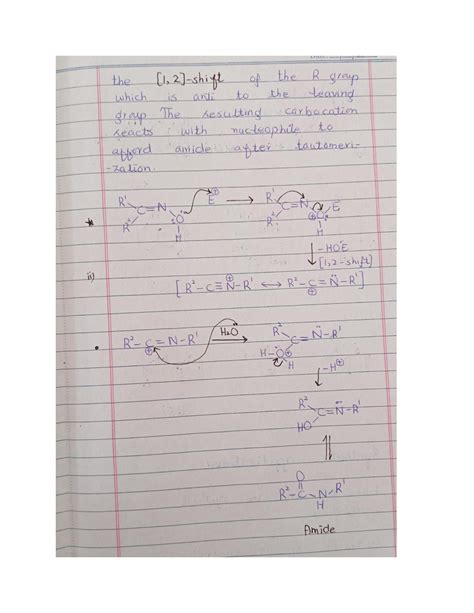 the [1,2]-shift of the R group
which is anti to the leaving
group The resulting carbocation
reacts with nucleophile to
afford amide after tautomeri-
-zation.
R¹ R² C=N O H E⊕ → R¹ R² C=N O⊕ E H
-HOE
[1,2-shift]
ii) [R²-C≡N⊕-R¹ ↔ R²-C⊕=N̈-R¹]
R²-C⊕=N-R¹ H₂Ö → R² C=N̈-R¹ H-O⊕ H
-H⊕
R² C=N̈-R¹
HO
⇌
O
R²-C-N-R¹
H
Amide